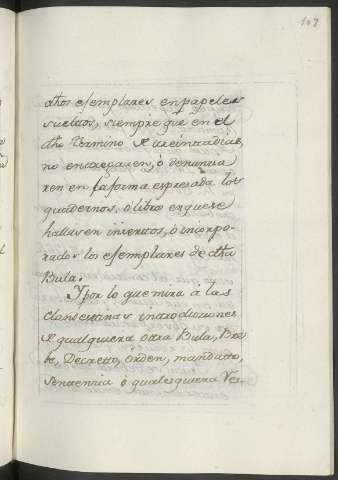 107
dhos exemplares en papeles
sueltos, siempre que en el
dho termino de treinta dias,
no entregaren, ò denuncia
ren en la forma expresada los
quadernos, ò libros en que se
hallasen insertos, ò incorpo-
rados los exemplares de dha
Bula.
Y por lo que mira à las
clandestinas introducciones
de qualquiera otra Bula, Bre
be, Decreto, òrden, mandato,
sentencia ò qualesquiera Res-